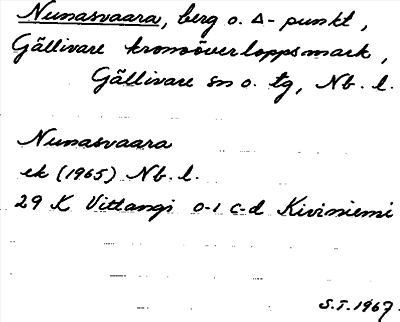 Nunasvaara, berg o. Δ-punkt,
Gällivare kronoöverloppsmark,
Gällivare sn o. tg, Nb. l.
Nunasvaara
ek (1965) Nb. l.
29 K Vittangi 0-1 c-d Kiviniemi
S.T. 1967.